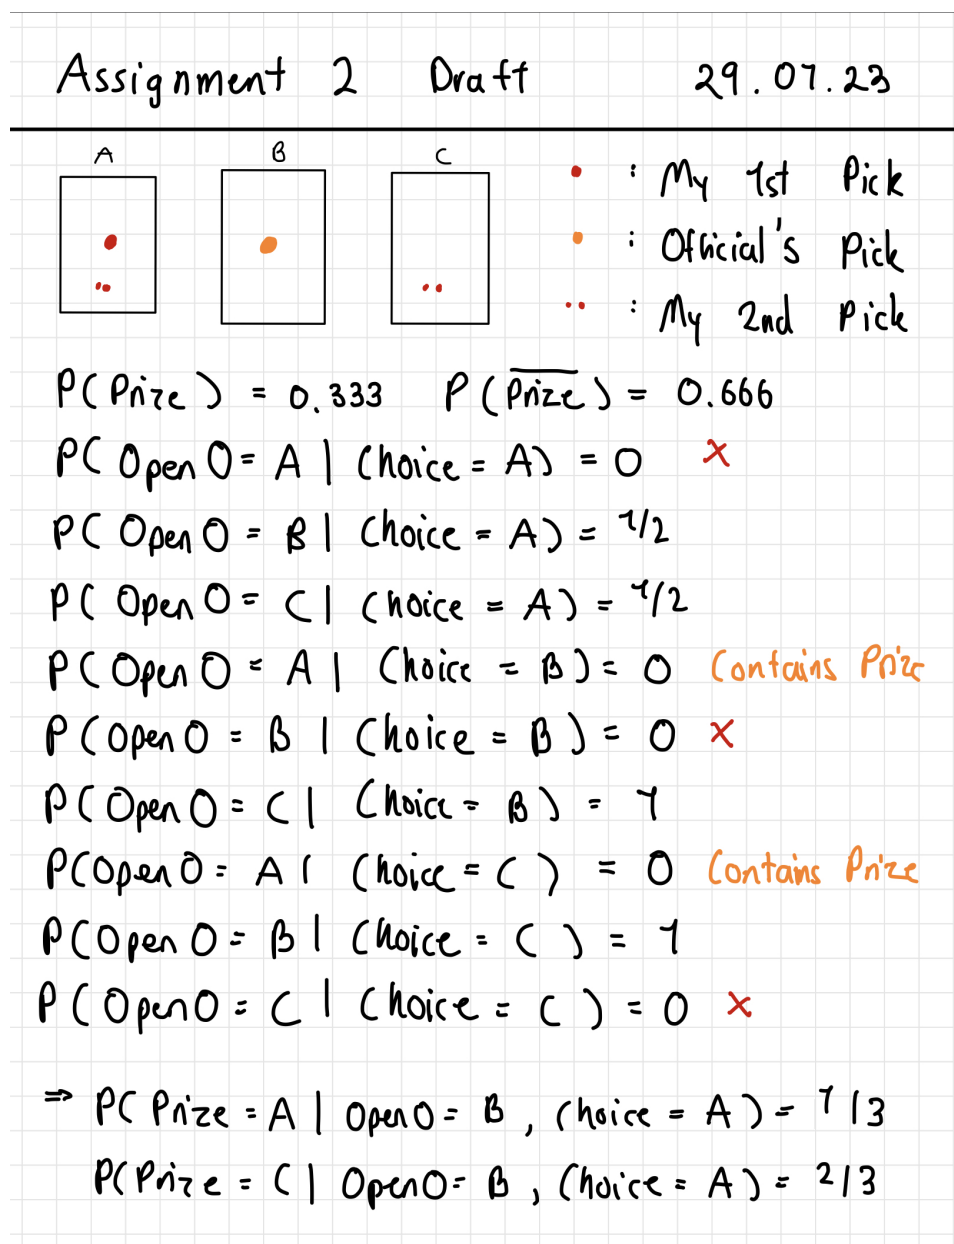 Assignment 2 Draft 29.07.23
A B C
: My 1st Pick
: Official's Pick
: My 2nd Pick
P(Prize) = 0.333 P(P̅r̅i̅z̅e̅) = 0.666
P(OpenO = A | Choice = A) = 0 x
P(OpenO = B | Choice = A) = 1/2
P(OpenO = C | Choice = A) = 1/2
P(OpenO = A | Choice = B) = 0 Contains Prize
P(OpenO = B | Choice = B) = 0 x
P(OpenO = C | Choice = B) = 1
P(OpenO = A | Choice = C) = 0 Contains Prize
P(OpenO = B | Choice = C) = 1
P(OpenO = C | Choice = C) = 0 x
⇒ P(Prize = A | OpenO = B, Choice = A) = 1/3
P(Prize = C | OpenO = B, Choice = A) = 2/3